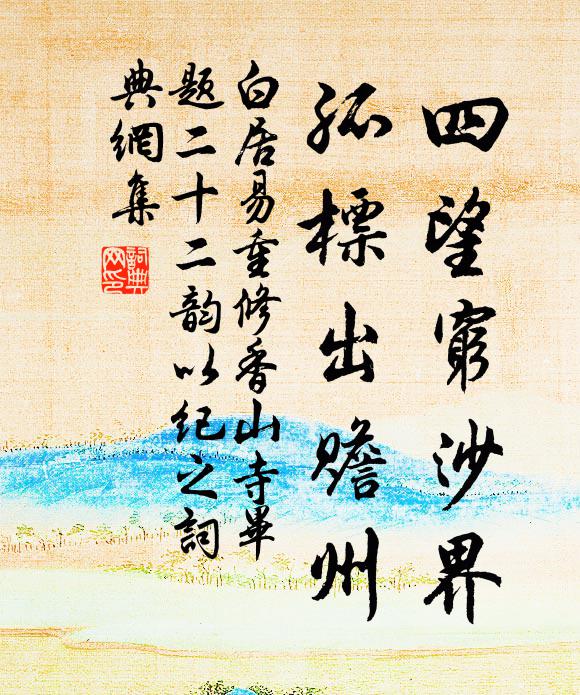 四望窮沙界
孤標出贍州
白居易重修香山寺畢
題二十二韵以紀之詞
典網集
詞典
网印